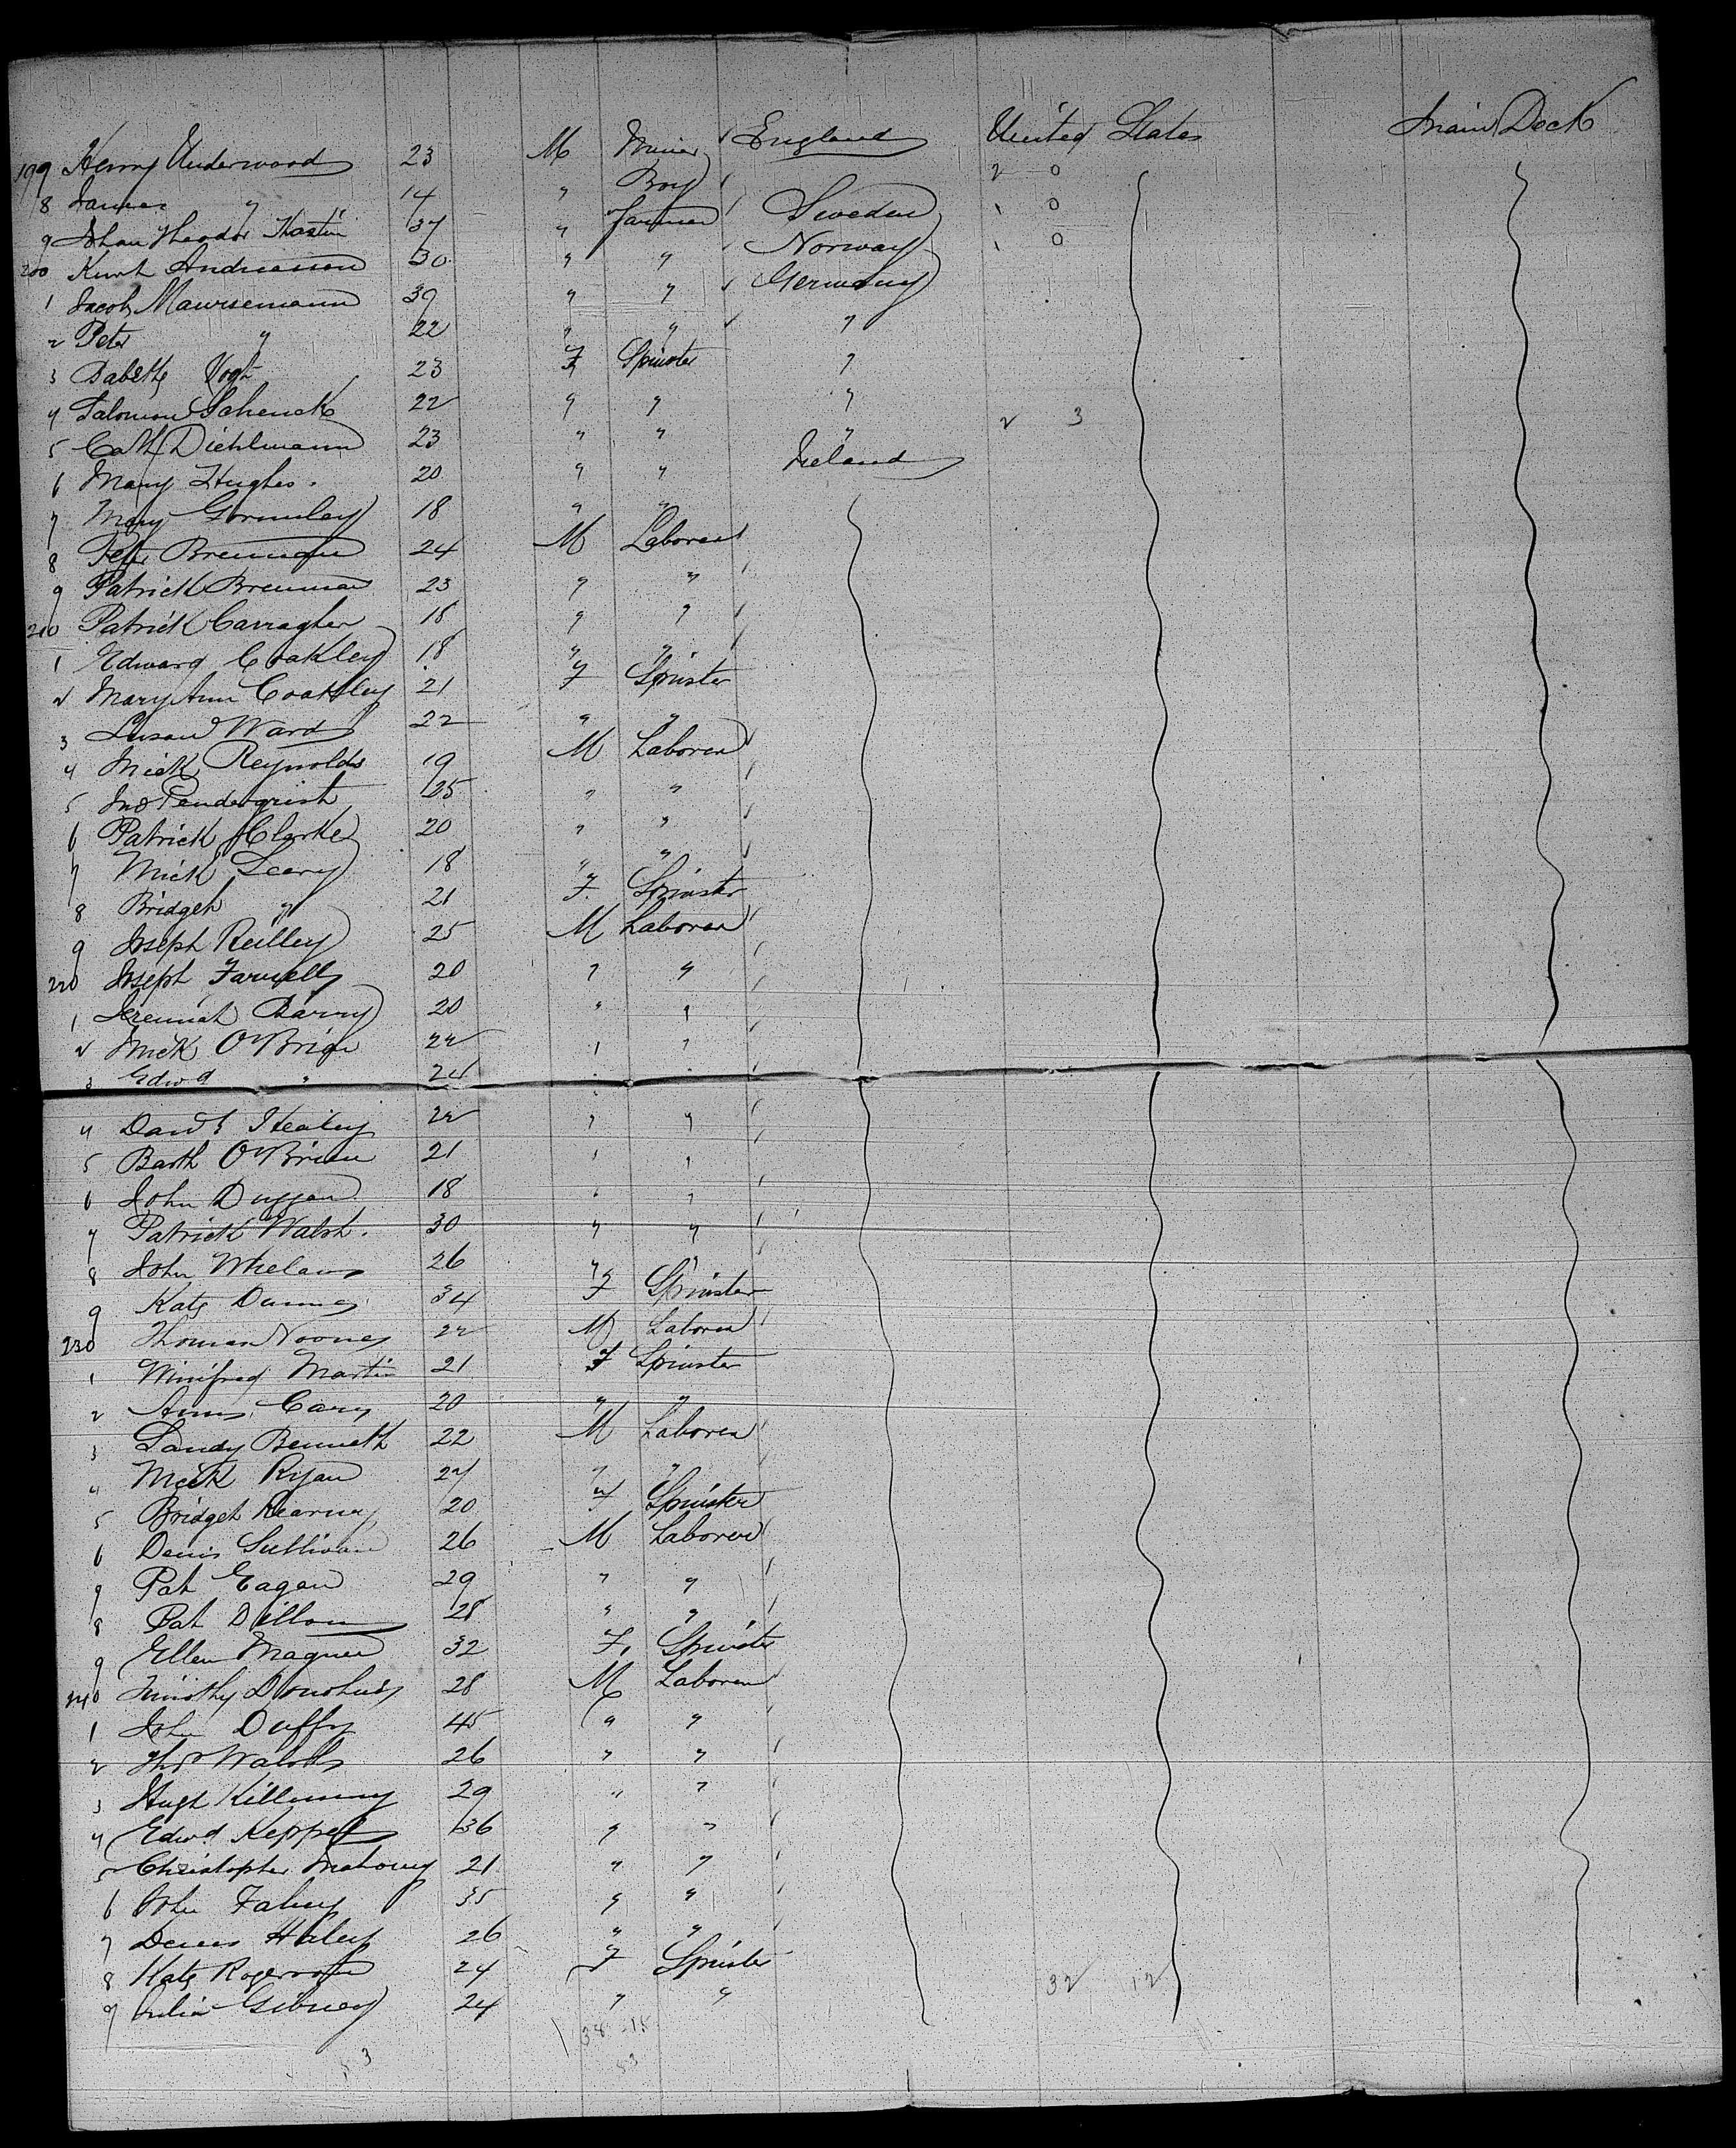 199 Henry Underwood 23 M Miner England United States Main Deck
8 James " 14 " Boy 2 0
9 Johan Theodor 37 " Farmer Sweden 1 0
200 Kurt Andreasson 30 " " Norway 1 0
1 Jacob 39 " " Germany
2 Peter " 22 " " "
3 Babette Vogt 23 F Spinster "
4 Salomon Schenck 22 " " "
5 Cath Diehlmann 23 " " " 2 3
6 Mary Hughes. 20 " " Ireland
7 Mary Gormley 18 " "
8 Peter Brennan 24 M Laborer
9 Patrick Brennan 23 " "
210 Patrick Carragher 18 " "
1 Edward Coakley 18 " "
2 Mary Ann Coakley 21 F Spinster
3 Susan Ward 22 " "
4 Mick Reynolds 19 M Laborer
5 Jno Pendergrist 25 " "
6 Patrick Clarke 20 " "
7 Mick Leary 18 " "
8 Bridget " 21 F. Spinster
9 Joseph Reilley 25 M Laborer
220 Joseph Farrell 20 " "
1 Jeremiah Barry 20 " "
2 Mick O'Brien 22 " "
3 Edwd " 24 " "
4 David Healey 22 " "
5 Barth O'Brien 21 " "
6 John Duggan 18 " "
7 Patrick Walsh. 30 " "
8 John Whelan 26 " "
9 Kate 34 F Spinster
230 Thomas Noone 22 M Laborer
1 Winifred Martin 21 F Spinster
2 Annie Cary 20 " "
3 Sandy Bennett 22 M Laborer
4 Mick Ryan 24 " "
5 Bridget Kearney 20 F Spinster
6 Denis Sullivan 26 M Laborer
7 Pat Eagan 29 " "
8 Pat Dillon 28 " "
9 Ellen Magner 32 F. Spinster
240 Timothy Donohue 28 M Laborer
1 John Duffy 45 " "
2 Thos 26 " "
3 Hugh 29 " "
4 Edwd Keppel 36 " "
5 Christopher Mahony 21 " "
6 John Fahey 35 " "
7 Denis Haley 26 " "
8 Kate 24 F Spinster 32 12
9 Julia Gibney 24 " "
38-15
53 53